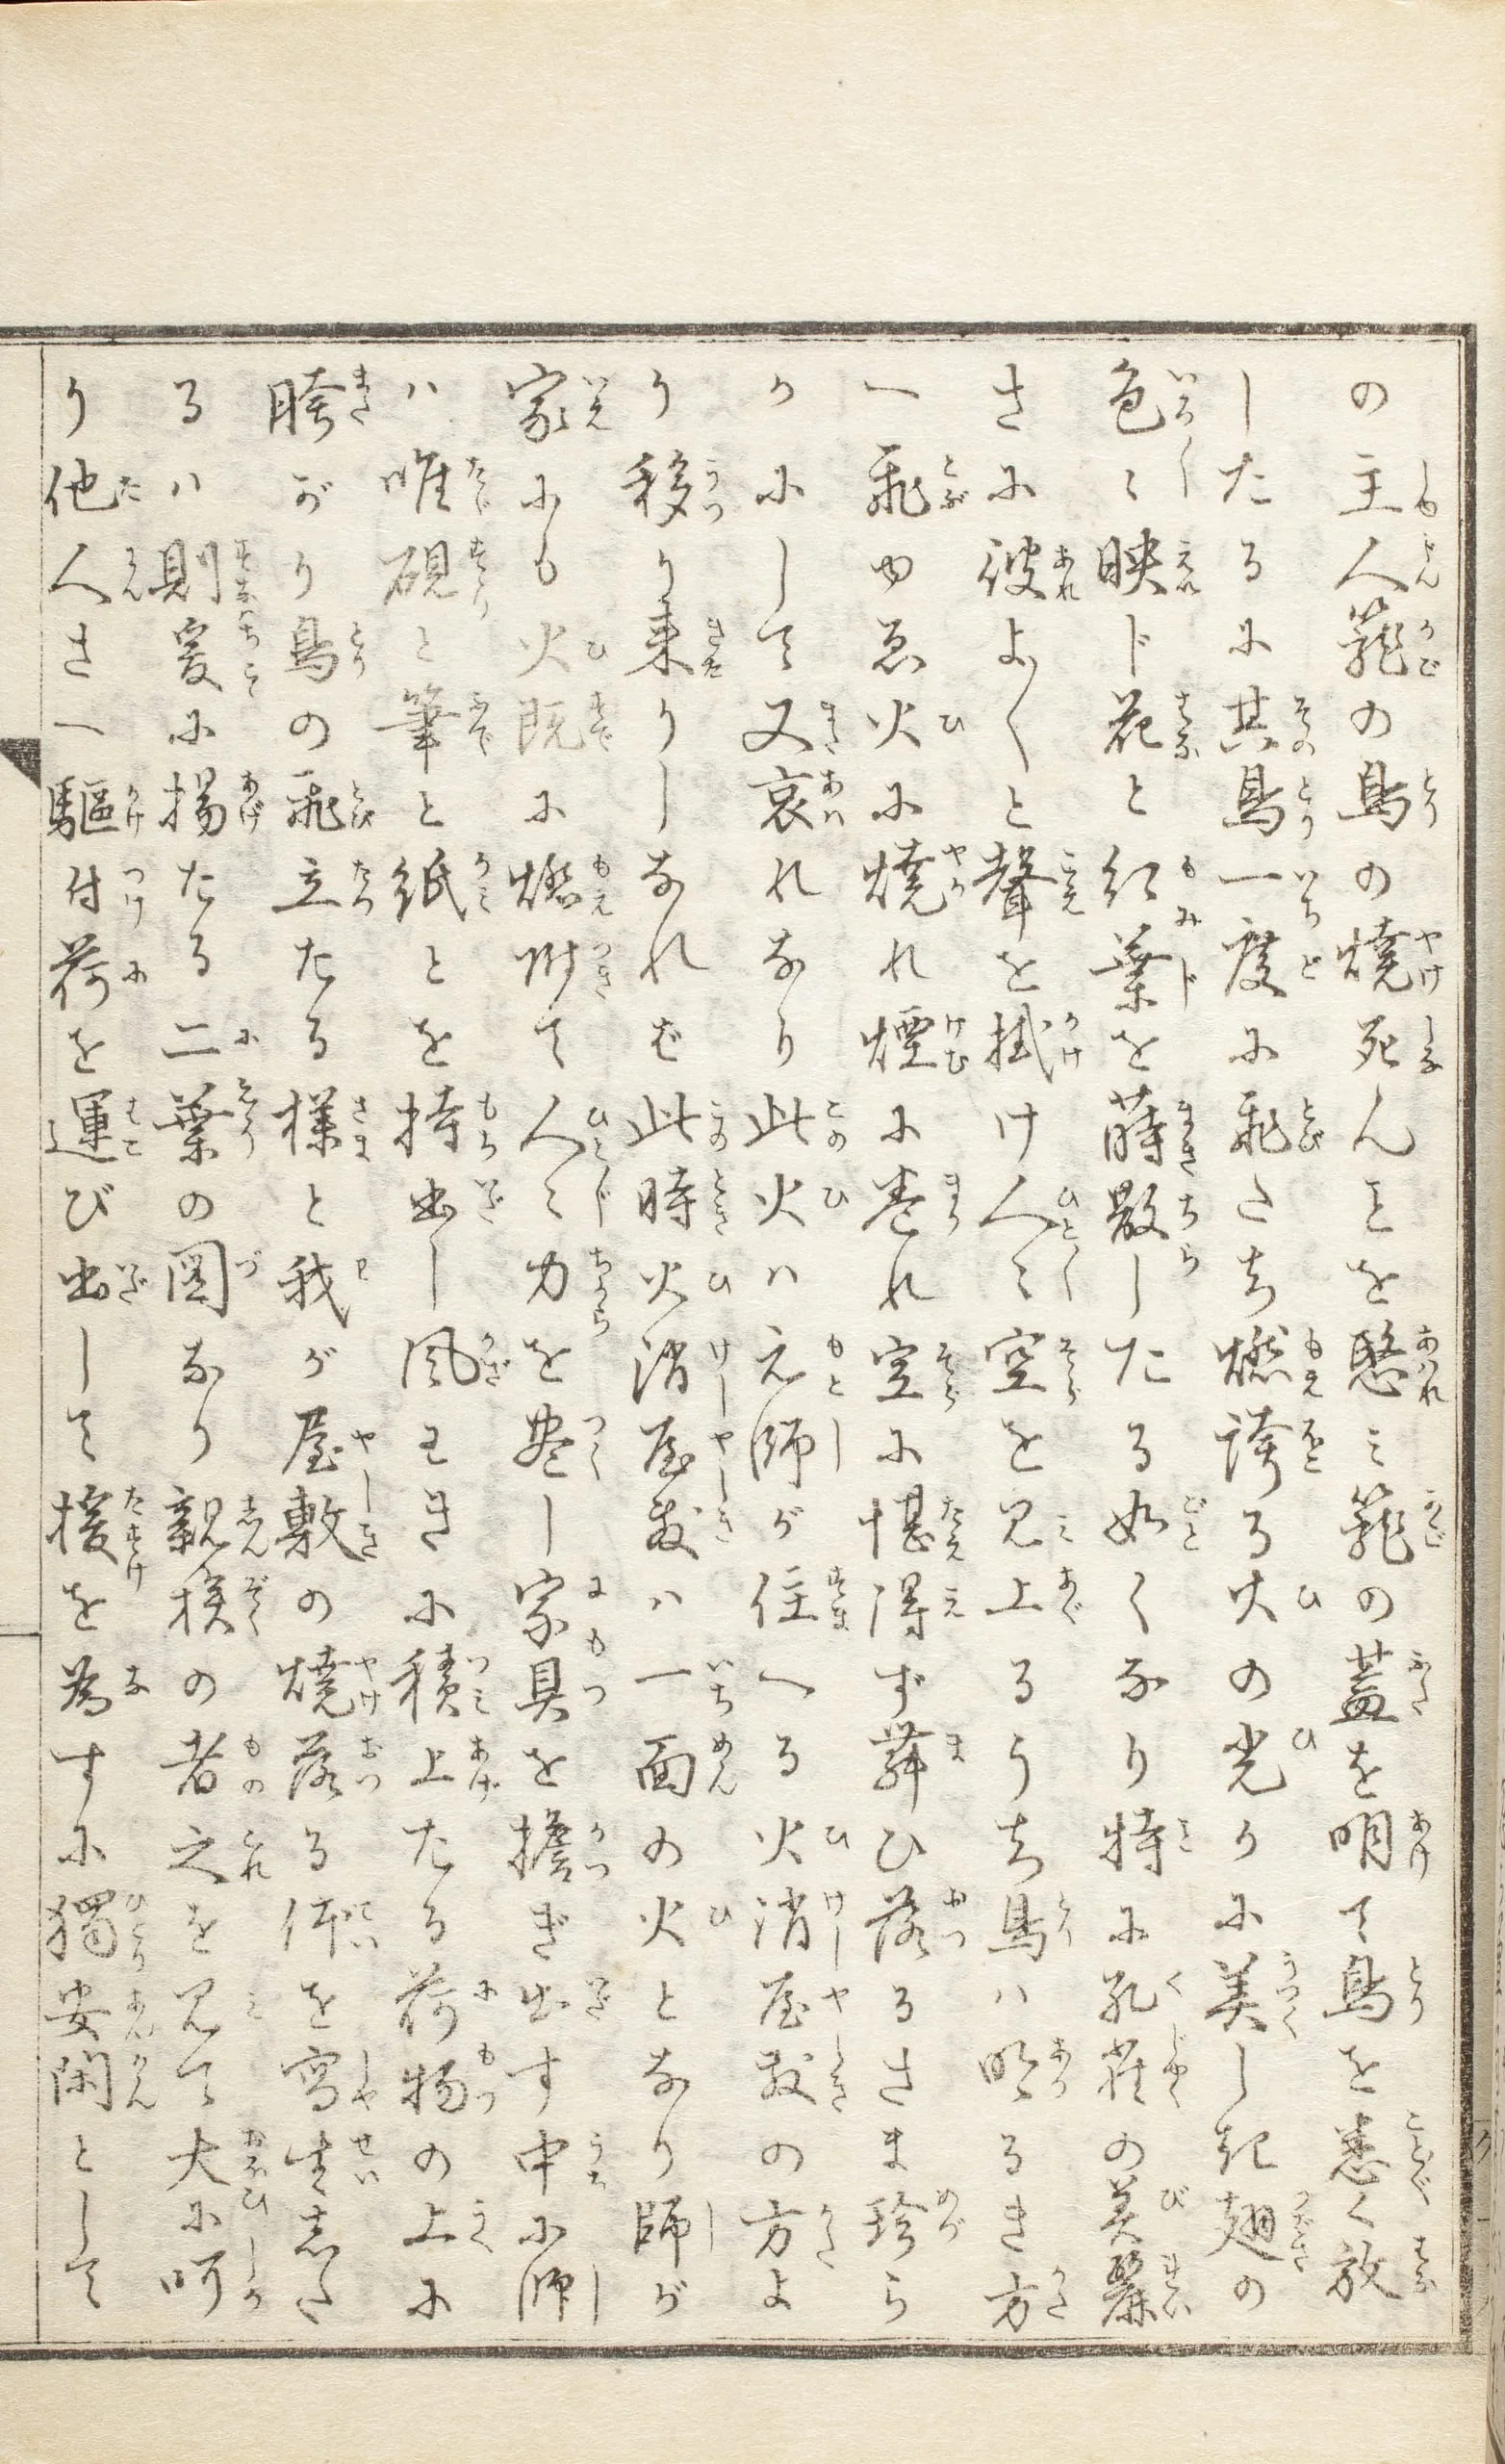 の主人籠の鳥の燒死んことを愍ミ籠の蓋を明て鳥を悉く放
したるに其鳥一度に飛たち燃誇る火の光りに美しき翅の
色〻映じ花と紅葉を蒔散したる如くなり特に孔雀の美麗
さに彼よ〳〵と聲を掛け人〻空を見上るうち鳥ハ明るき方
へ飛ゆゑ火に燒れ煙に巻れ空に堪得ず舞ひ落るさま珍ら
かにして又哀れなり此火ハ元師が住へる火消屋敷の方よ
り移り来りしなれば此時火消屋敷ハ一面の火となり師が
家にも火既に燃附て人〻力を盡し家具を擔ぎ出す中に師
ハ唯硯と筆と紙とを持出し風わきに積上たる荷物の上に
胯がり鳥の飛立たる様と我が屋敷の燒落る体を寫生した
るハ則爰に揚たる二葉の圖なり親族の者之を見て大に呵
り他人さへ驅付荷を運び出して援を為すに獨安閑として